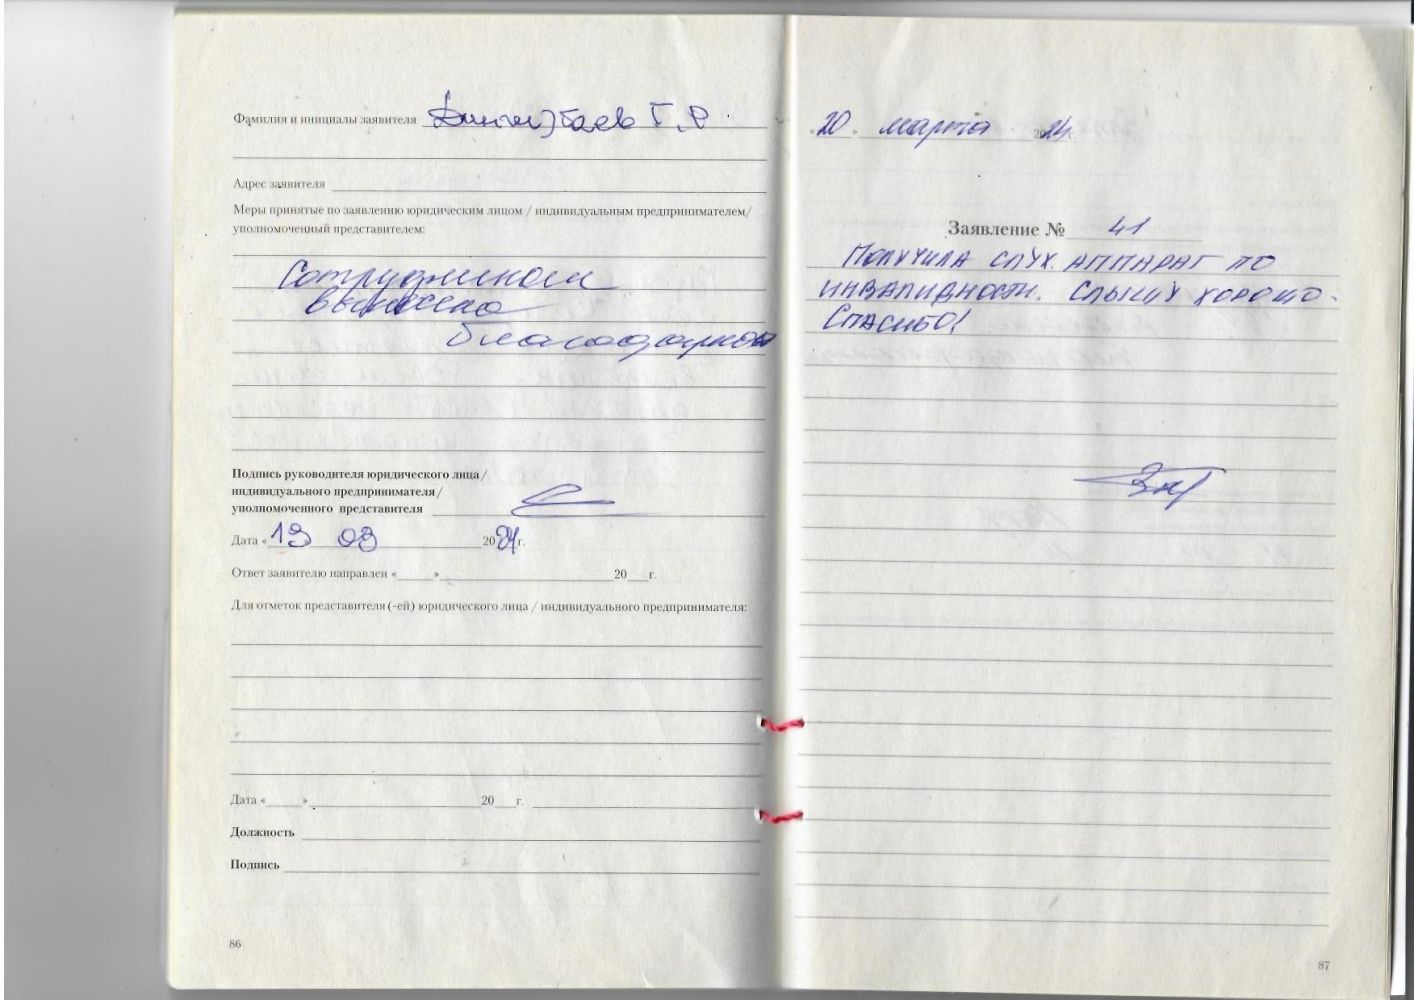 Фамилия и инициалы заявителя Г.Р.
Адрес заявителя
Меры принятые по заявлению юридическим лицом / индивидуальным предпринимателем/
уполномоченный представителем:
Сотрудникам
вынесена
благодарность
Подпись руководителя юридического лица /
индивидуального предпринимателя /
уполномоченного представителя
Дата « 13 03 2024г.
Ответ заявителю направлен «____»____ 20__г.
Для отметок представителя (-ей) юридического лица / индивидуального предпринимателя:
Дата «____»____ 20__г.
Должность
Подпись
86
20. марта 2024г.
Заявление № 41
Получила слух. аппарат по
инвалидности. Слышу хорошо.
Спасибо!
87